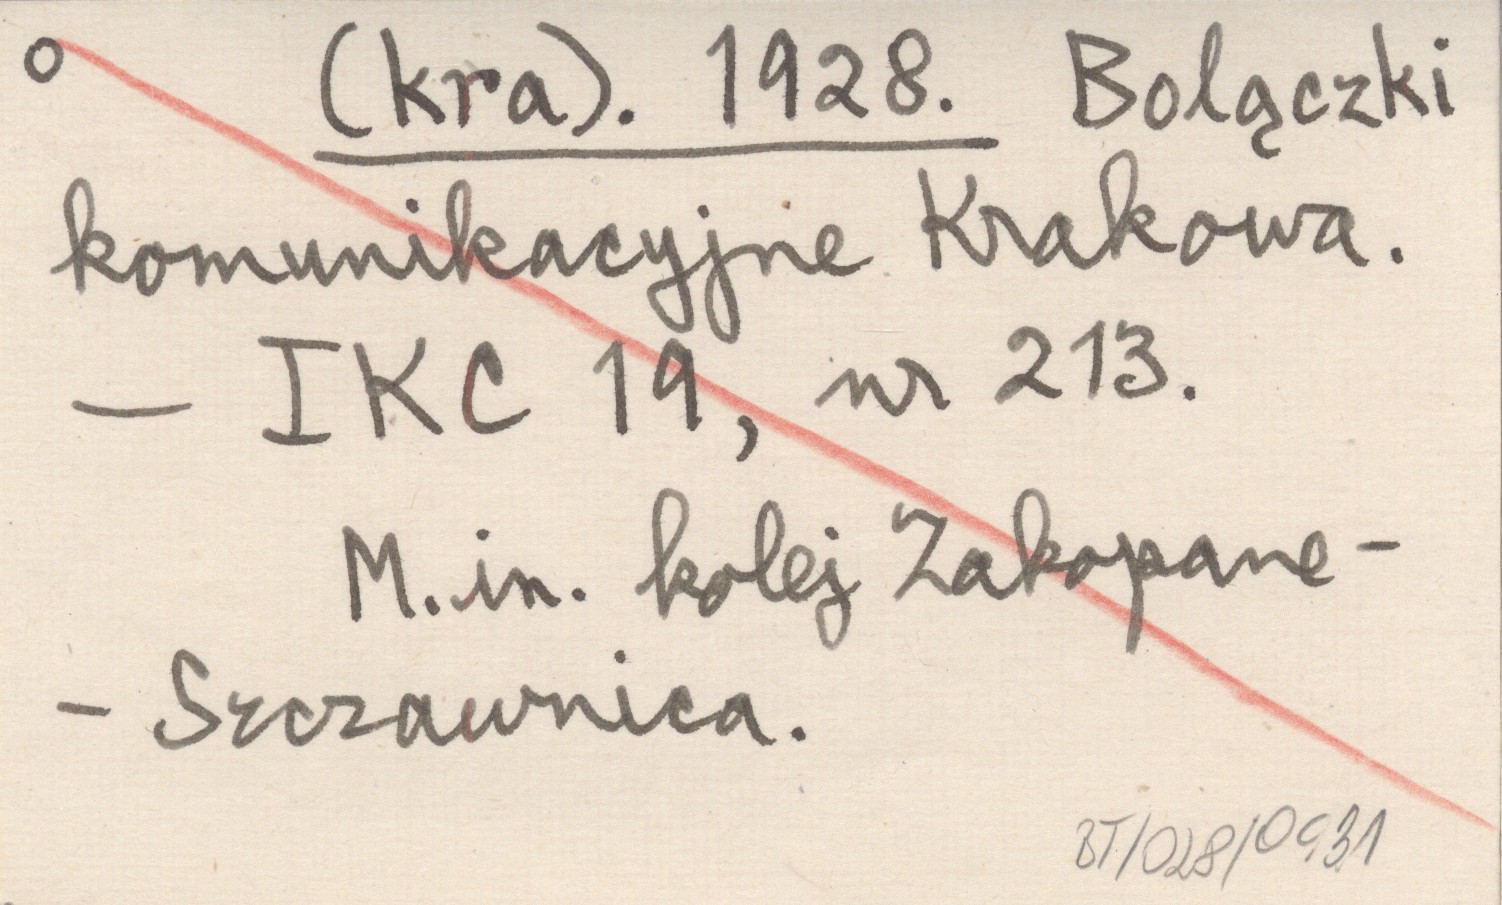 o (kra). 1928. Bolączki
komunikacyjne Krakowa.
— IKC 19, nr 213.
M.in. kolej Zakopane-
- Szczawnica.
BT/028/0931